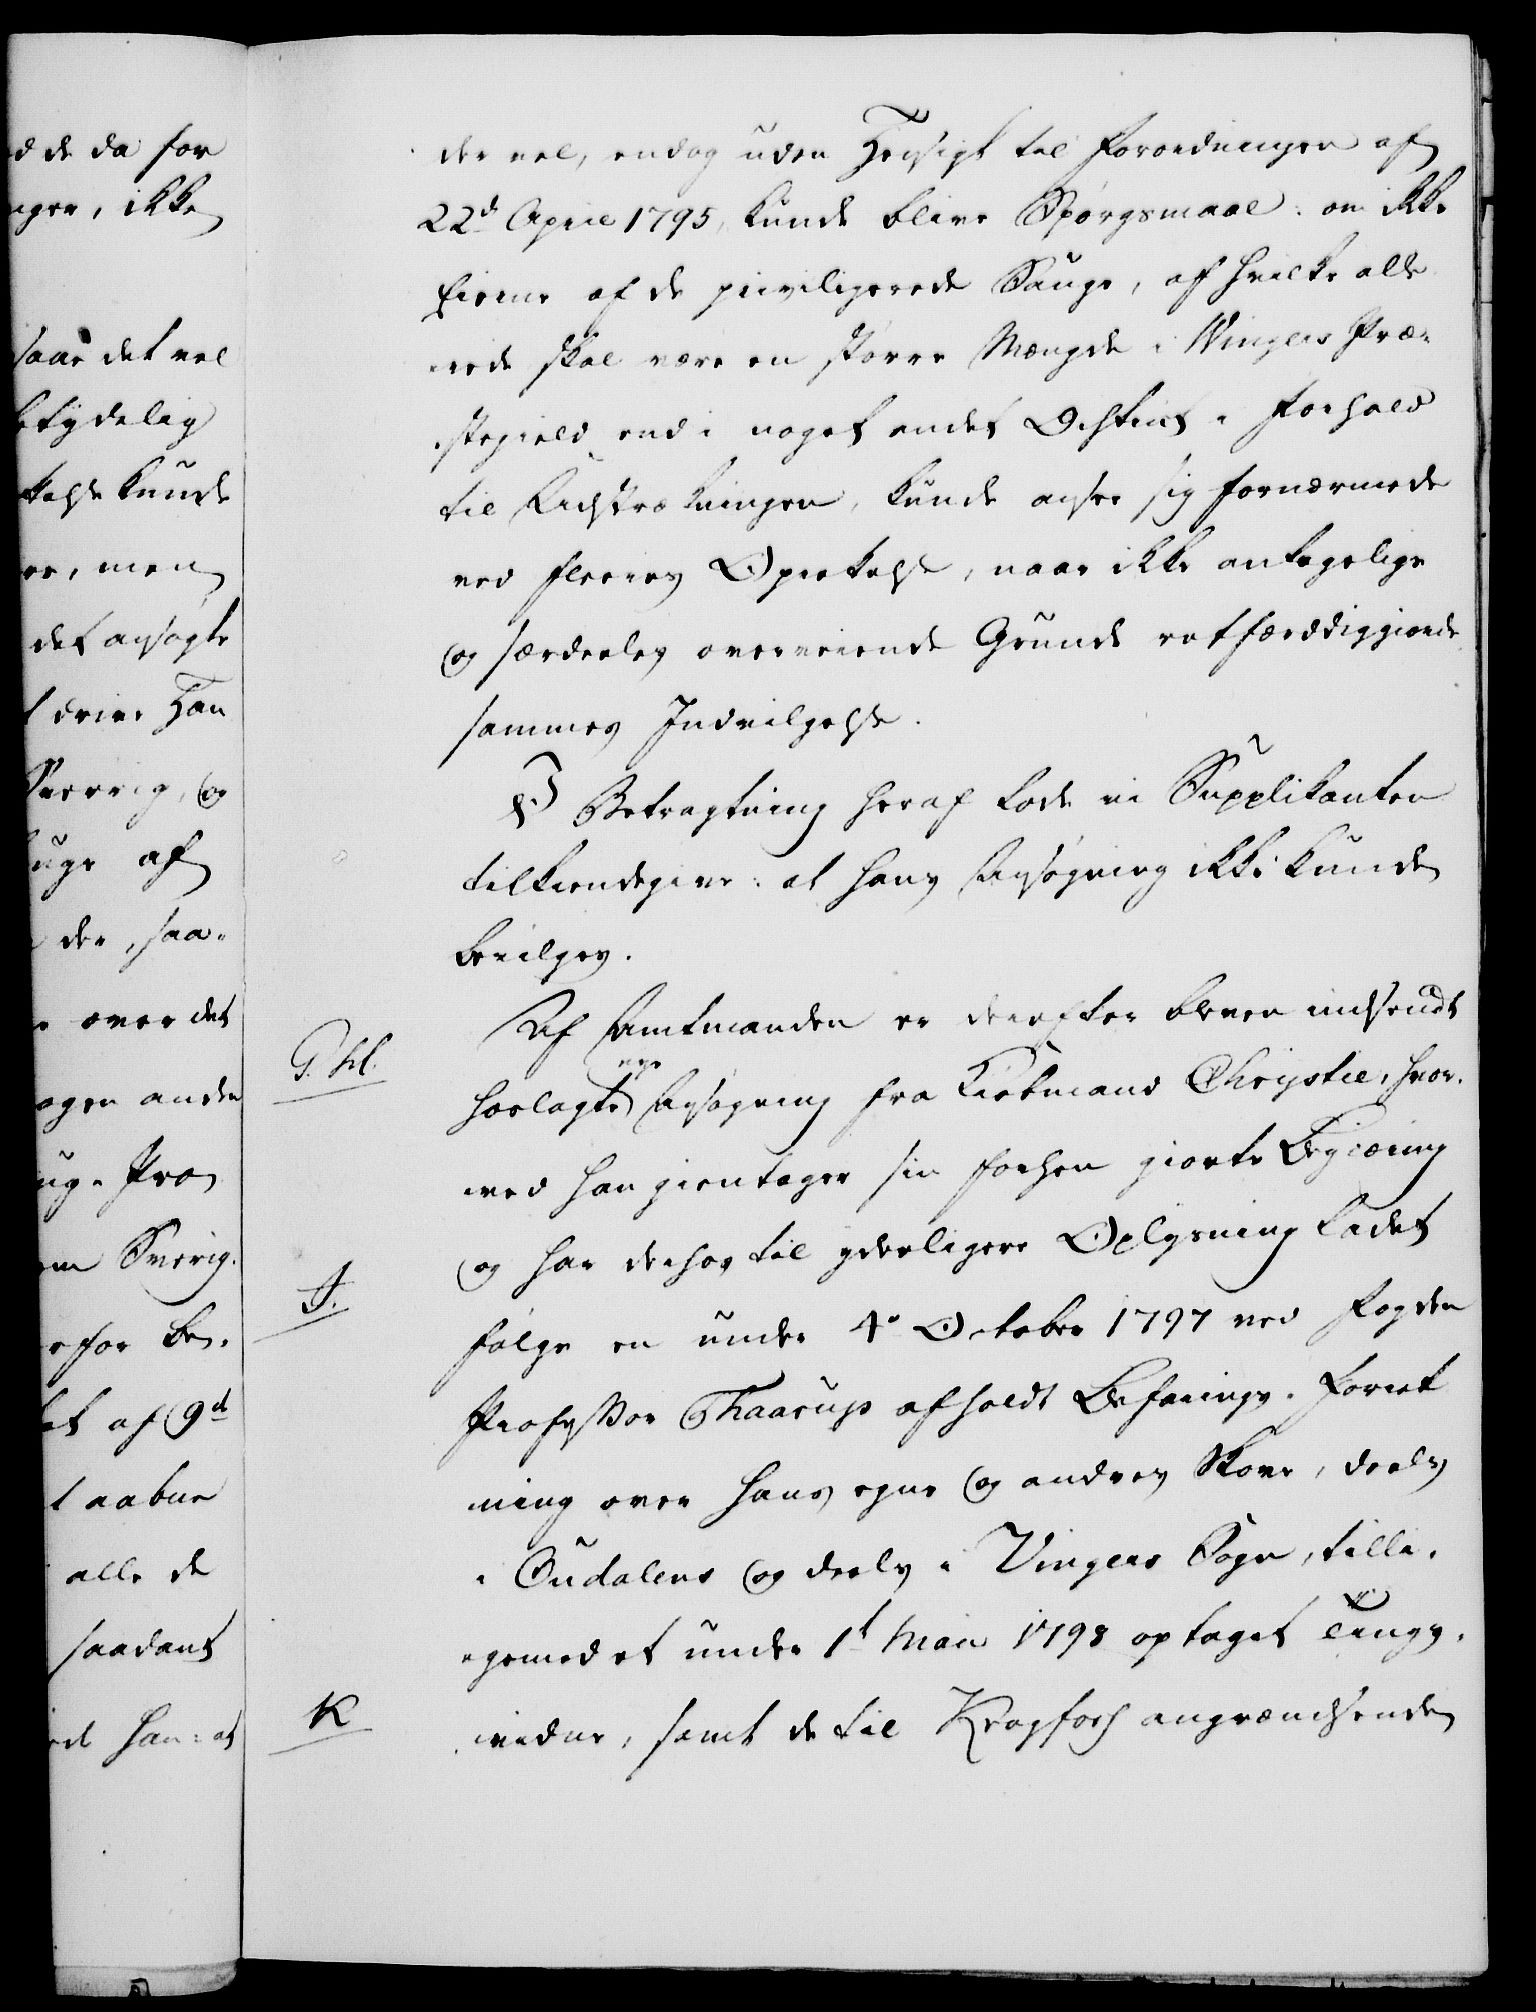 d de da for
nger, ikke
saae det vel
betydelig
telse kunde
re, men
det ansøgte
t drive Han
Sverrig, og
uge af
der, saa-
over det
ogen anden
ug. Pro
em Sverig.
efor be-
let af 9d
t aabne
alle de
saadant
ede han: at
der vel, endog uden Hensigt til Forordningen af
22d April 1795, kunde blive Spørgsmaal: om ikke
Eierne af de priviligerede Sauge, af hvilke alle
rede skal være en større Mængde i Wingers Præ-
stegield end i noget andet District i Forhold
til Udstrækningen, kunde ansee sig fornærmede
ved fleeres Oprettelse, naar ikke antagelige
og særdeeles overveiende Grunde retfærdiggiorde
sammes Indvilgelse.
I Betragtning heraf lode vi Supplikanten
tilkiendegive: at hans Ansøgning ikke kunde
bevilges.
Af Amtmanden er derefter bleven indsendt
G. H.
nye
hoslagte Ansøgning fra Kiøbmand Christie, hvor-
ved han gientager sin forhen giorte Begiæring
og har derhos til yderligere Oplysning ladet
I.
følge en under 4de October 1797 ved Fogden
Professor Thaarup afholdt Befarings-Forret
ning over hans egne og andres Skove, deels
i Oudalens og deels i Vingers Sogn, tilli-
gemed et under 1t Maii 1798 optaget Tings-
K
vidne, samt de til Kragfoss angrændsende